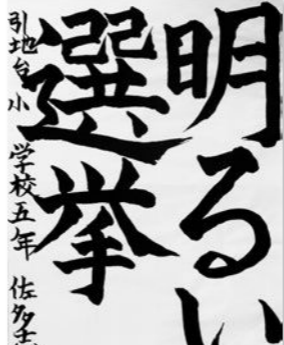 明るい
選挙
引地台小学校五年 佐多